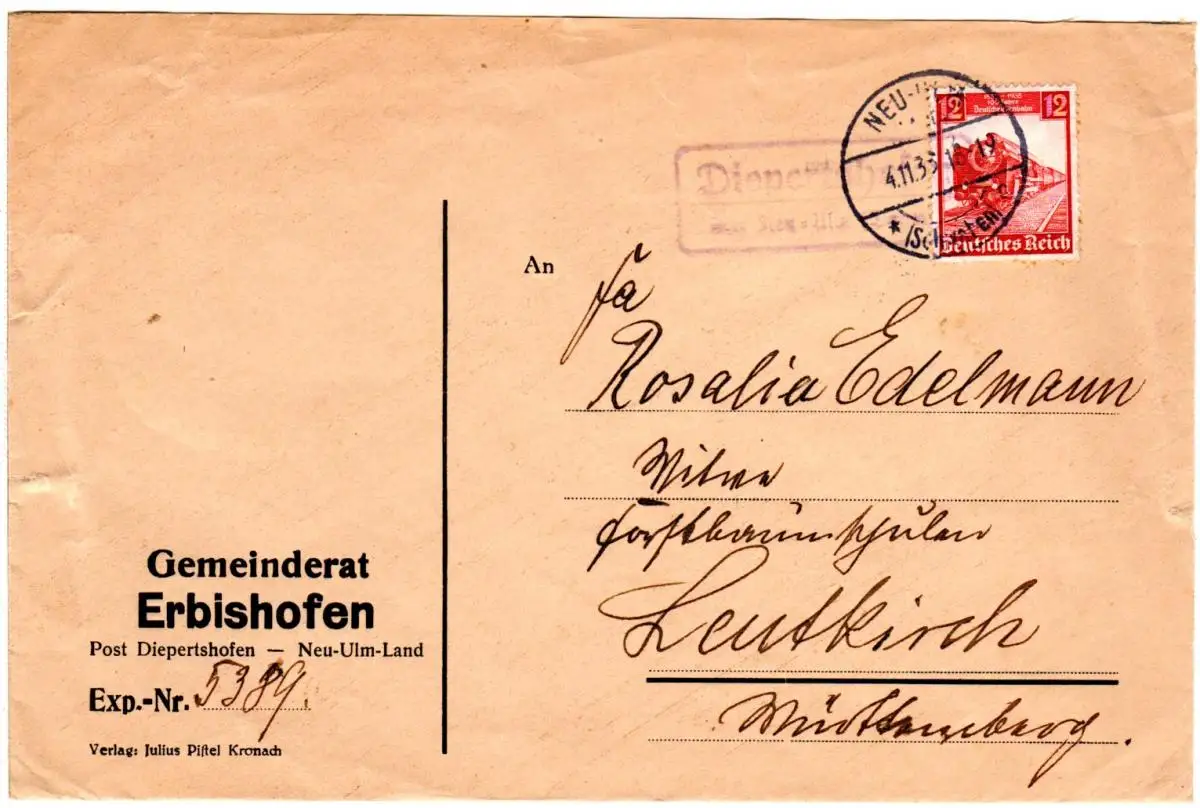 NEU-ULM
4.11.35.18-19
* (Schwaben)
12 12
1835-1935
100 Jahre
Deutsche Eisenbahn
Deutsches Reich
Diepertshofen
Neu-Ulm
An
Fa
Rosalia Edelmann
Witwe
Forstbaumschulen
Leutkirch
Württemberg.
Gemeinderat
Erbishofen
Post Diepertshofen — Neu-Ulm-Land
Exp.-Nr. 5389.
Verlag: Julius Pistel Kronach